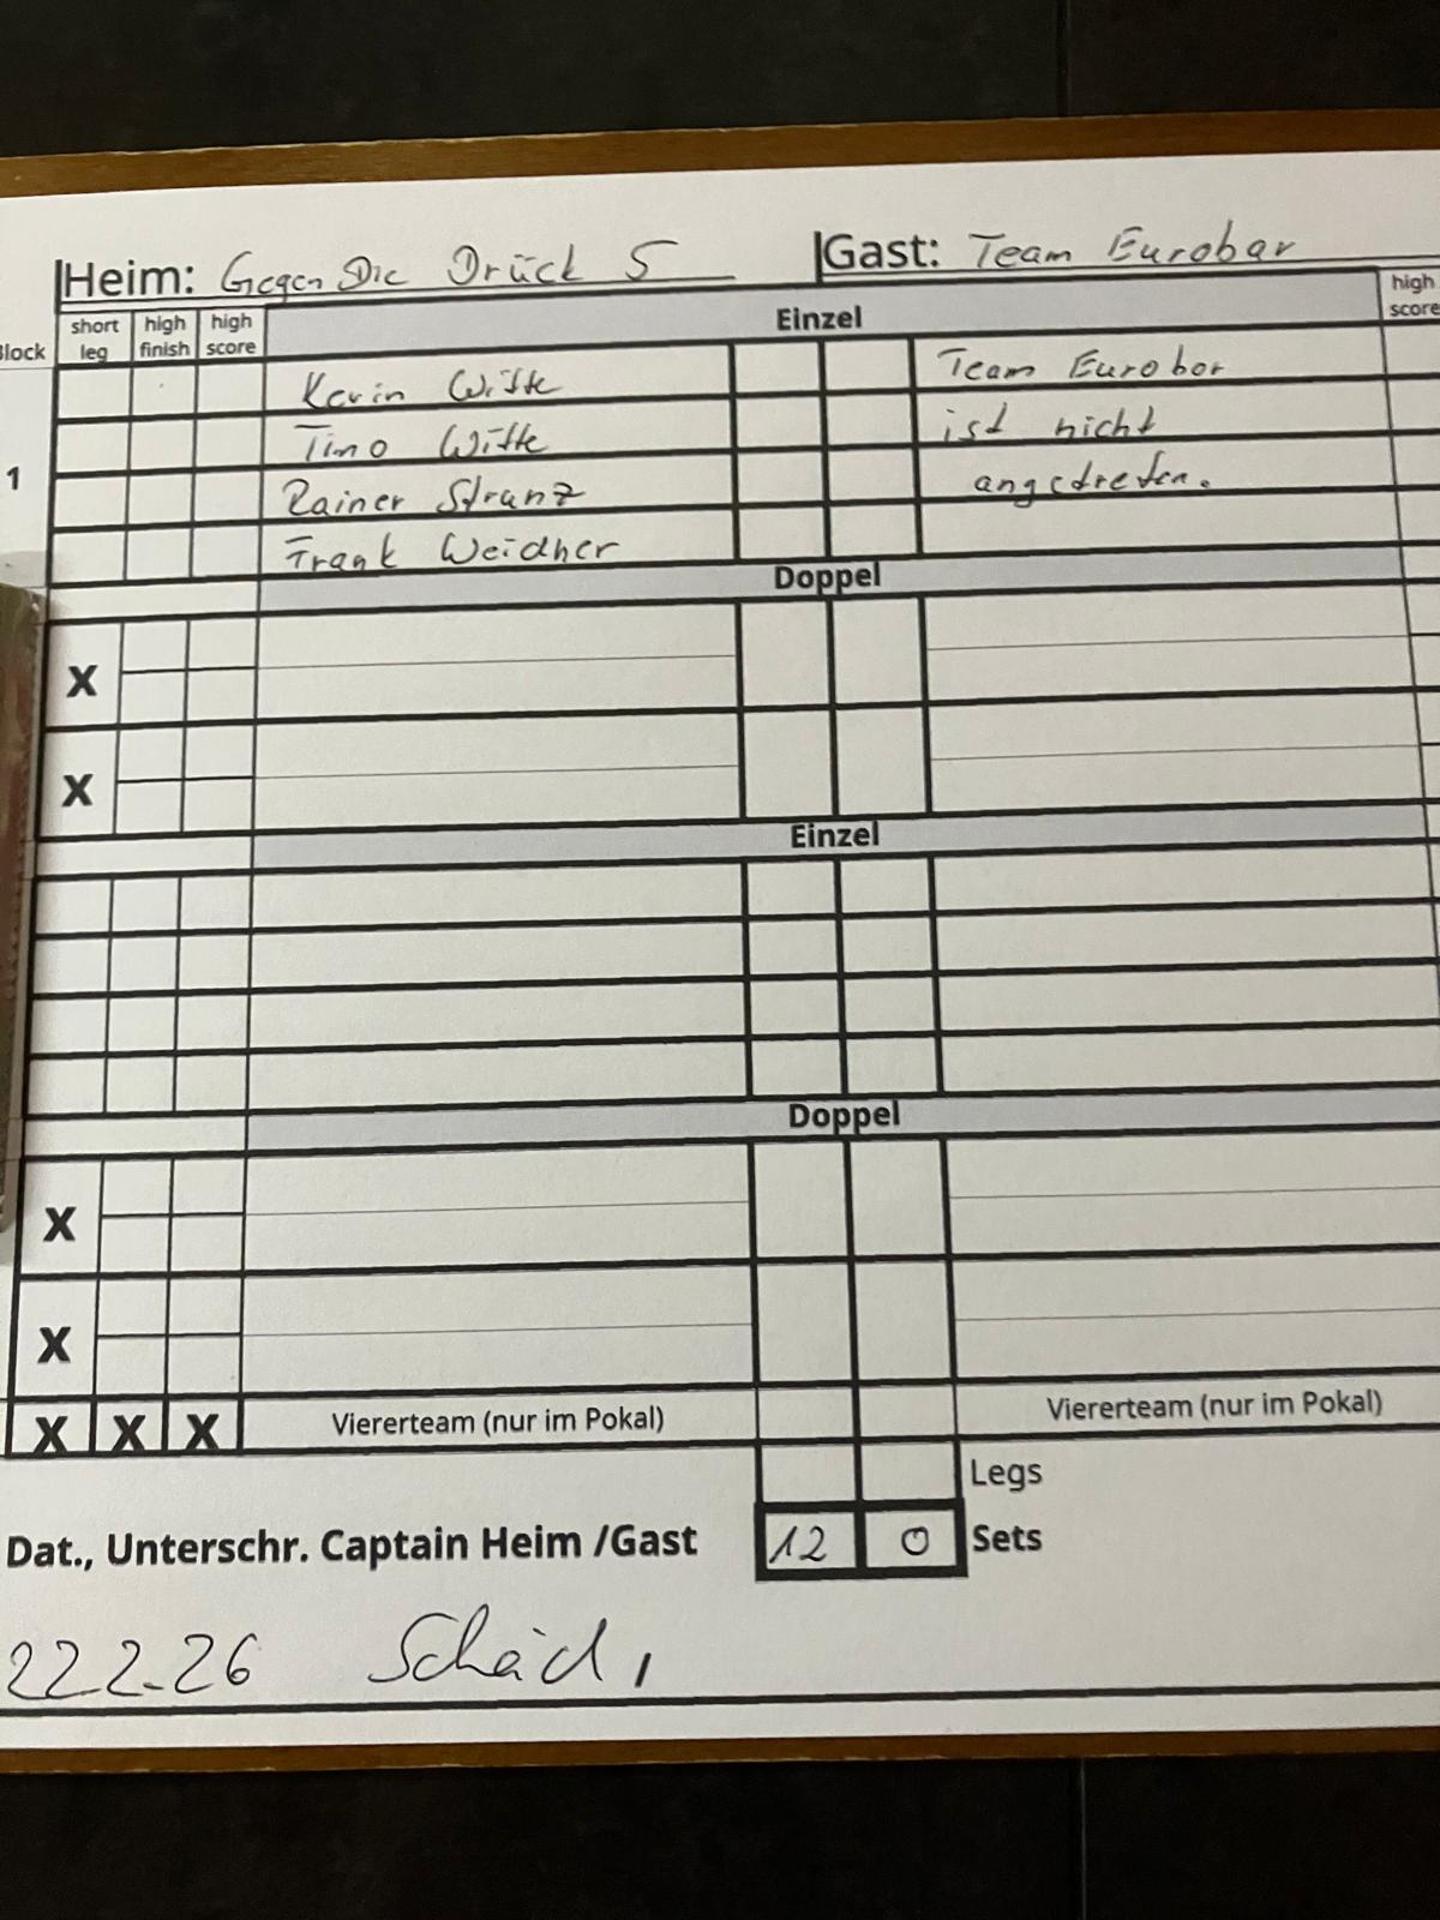 Heim: Gegen Die Drück 5 Gast: Team Eurobar
Block short leg high finish high score Einzel high score
1
Kevin Witte Team Eurobar
Tino Witte ist nicht
Rainer Stranz angetreten.
Frank Weidner
Doppel
X
X
Einzel
Doppel
X
X
X X X Viererteam (nur im Pokal) Viererteam (nur im Pokal)
Legs
Dat., Unterschr. Captain Heim /Gast 12 0 Sets
22.2.26